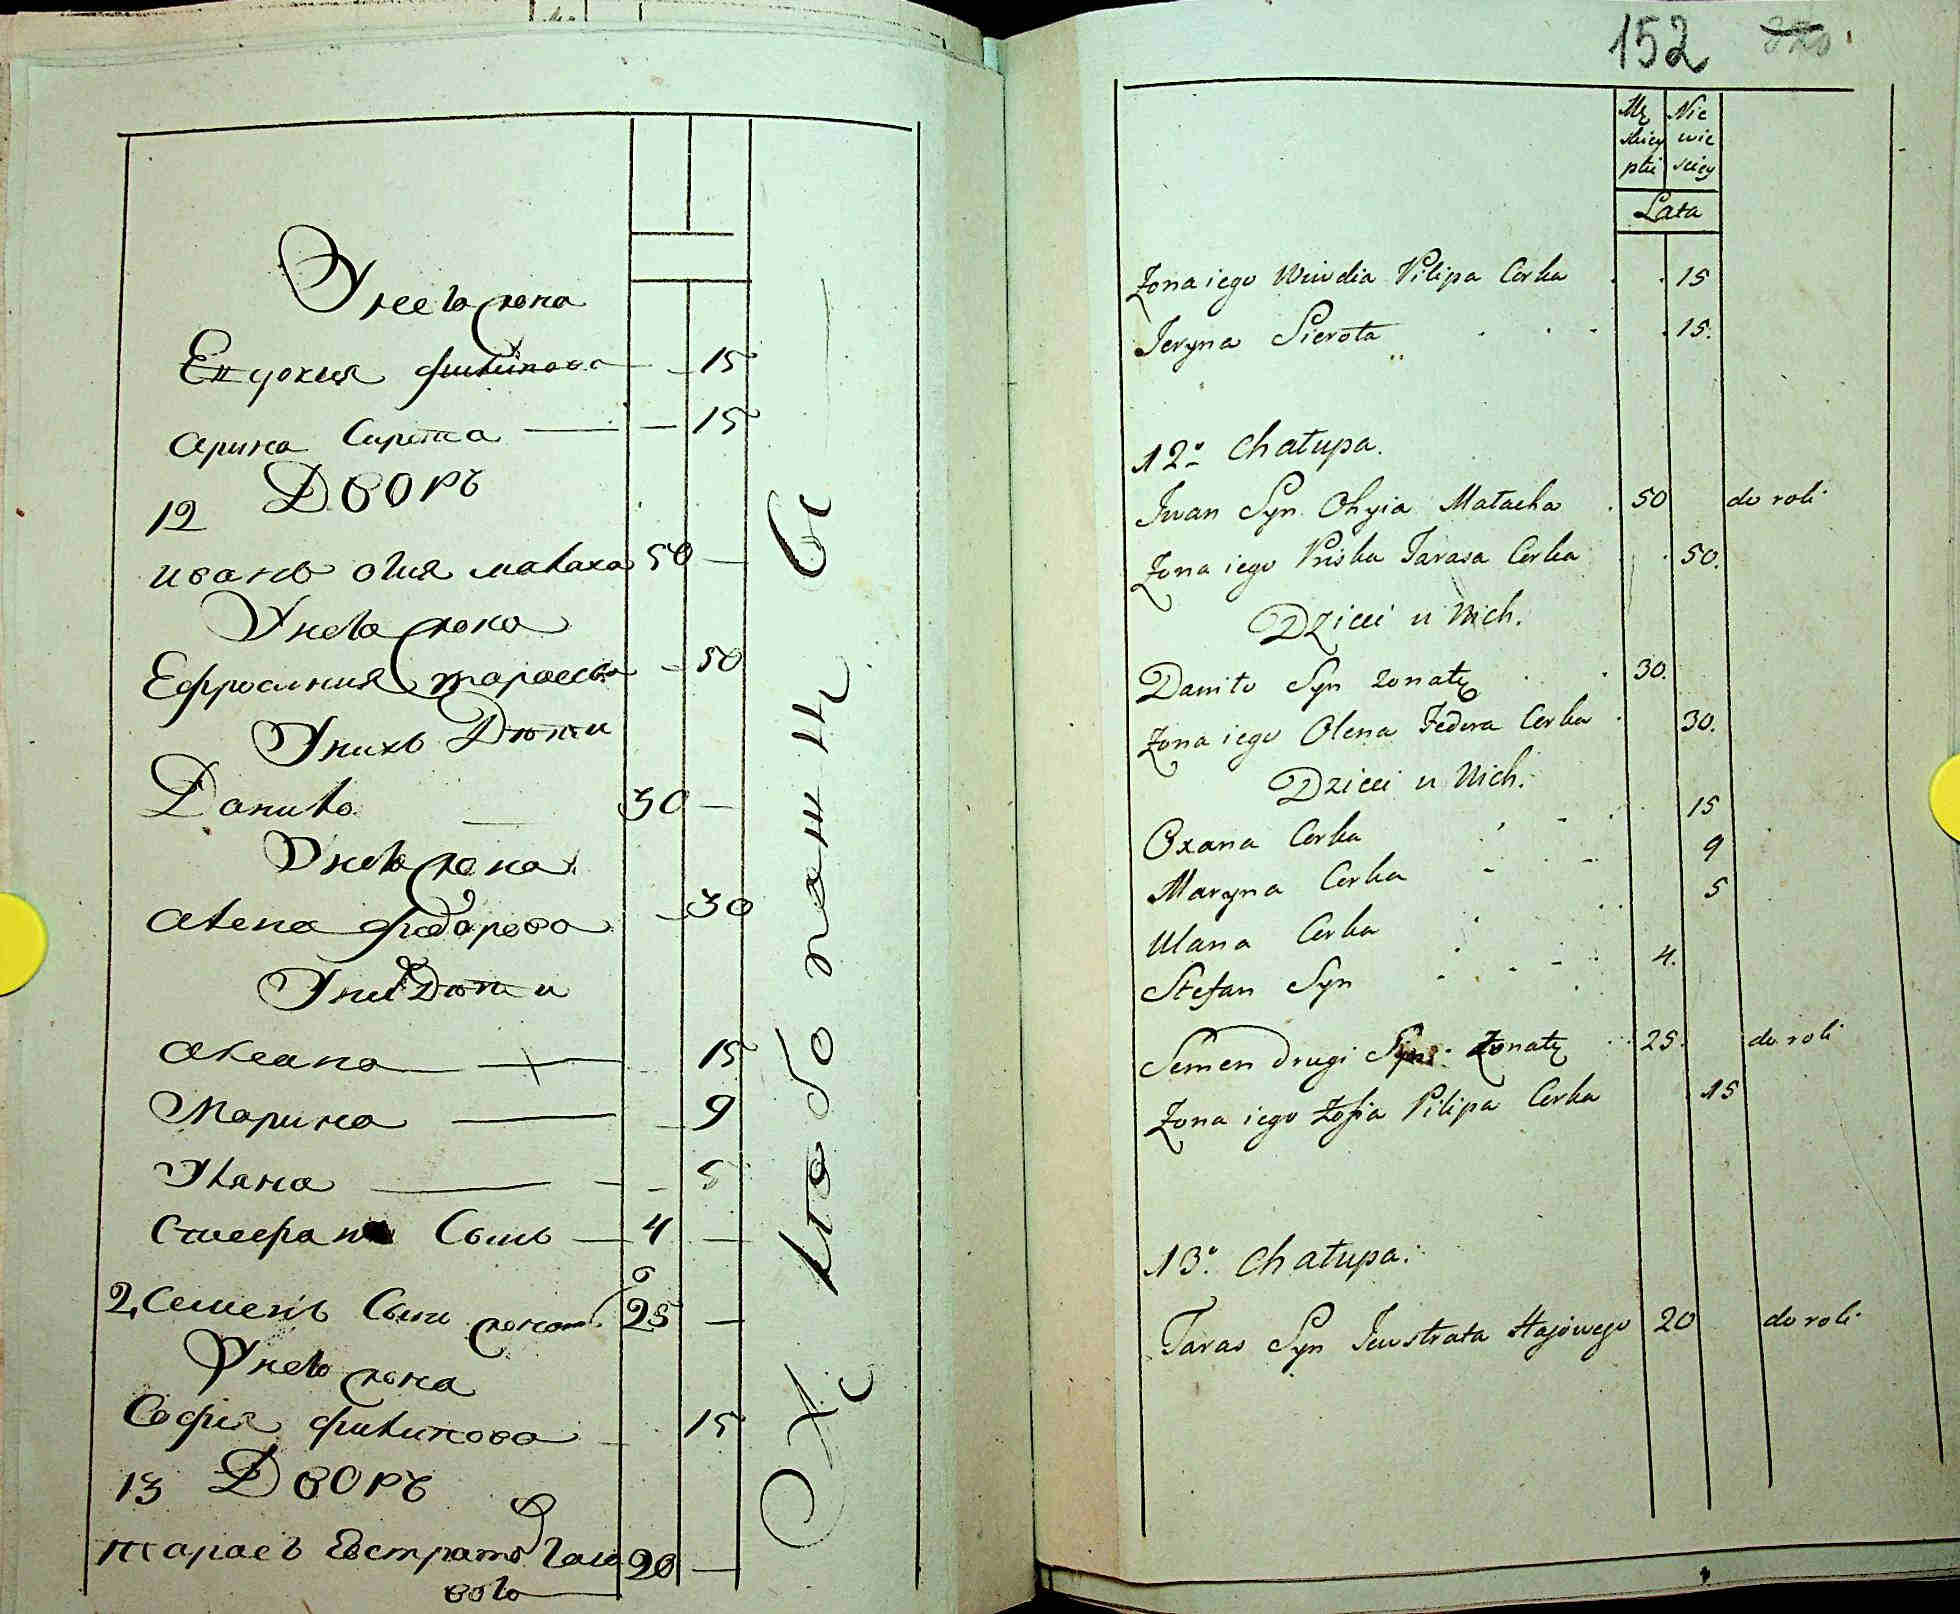 Унего жена
Евдокия филипова 15
арина Сирота 15
12 Дворъ
иванъ огия малаха 50
Унего жена
Ефросиния тарасова 50
Унихъ Дѣти
Данило 30
Унего жена
алена фиодарова 30
Уних Дѣти
аксана 15
Марина 9
Улана 5
Стефанъ Сынъ 4
2, Семенъ Сынъ жонат 25
Унего жена
София филипова 15
13 Дворъ
тарасъ Евстратов Гаю 20
вого
152
Mę Nie
skiey wie
płci sciey
Lata
Żona iego Wiwdia Pilipa Corka 15
Jeryna Sierota 15.
12º Chałupa.
Jwan Syn Ohyia Małacha 50 do roli
Żona iego Priska Tarasa Corka 50.
Dzieci u Nich.
Daniło Syn zonaty 30.
Żona iego Olena Fedora Corka 30.
Dzieci u Nich.
Oxana Corka 15
Maryna Corka 9
Ulana Corka 5
Stefan Syn 4.
Semen drugi Syn Żonaty 25. do roli
Żona iego Zofia Pilipa Corka 15
13º Chałupa.
Taras Syn Jewstrata Hajowego 20 do roli